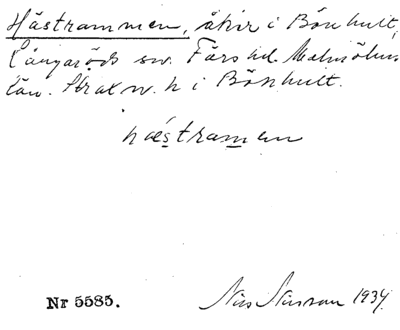 Hästrammen, åker i Bönhult,
Långaröds sn. Färs hd. Malmöhus
län. Strax n. h i Bönhult.
hæstramen
Nr 5585.
Nils Nilsson 1934.